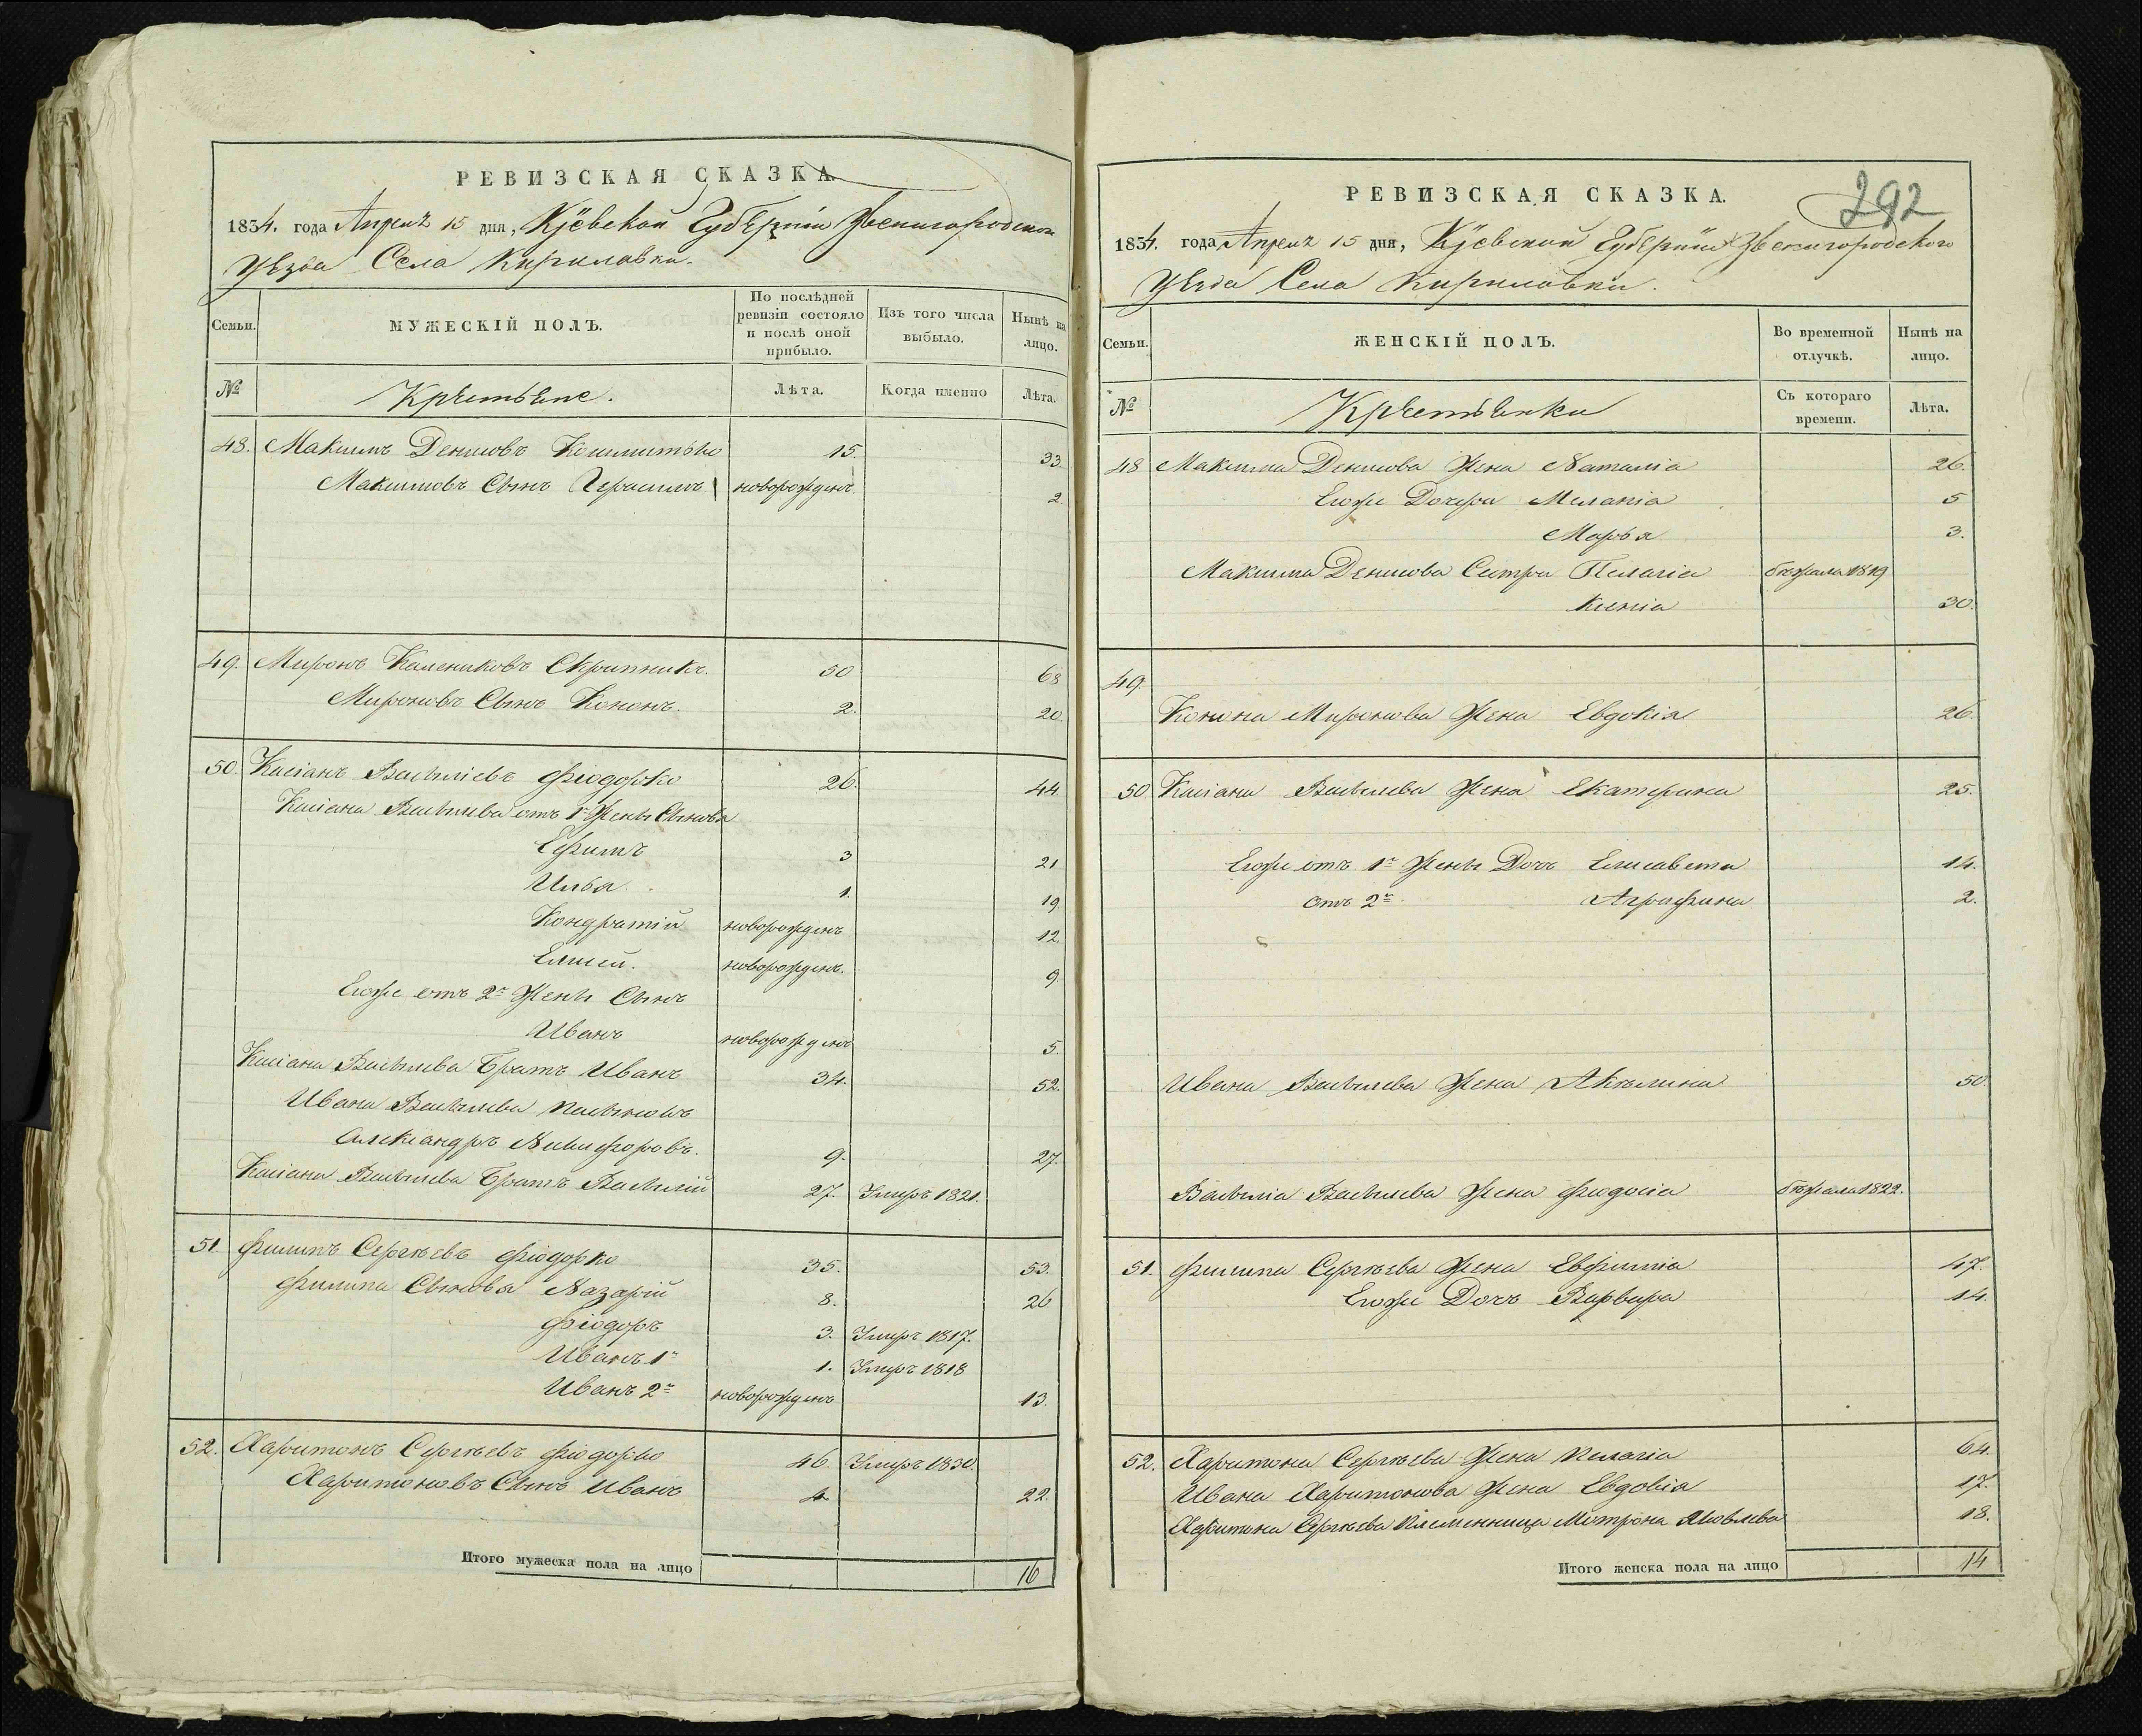 РЕВИЗСКАЯ СКАЗКА.
1834. года Апреля 15 дня, Кіевской Губерніи Звенигородскои
Уѣзда Села Кириловки.
Семьи.
МУЖЕСКІЙ ПОЛЪ.
По послѣдней ревизіи состояло и послѣ оной прибыло.
Изъ того числа выбыло.
Нынѣ на лицо.
№
Крѣстьѣне.
Лѣта.
Когда именно
Лѣта.
48. Максимъ Денисовъ 15 33
Максимовъ Сынъ Герасимъ новорожденъ 2
49. Миронъ Калениковъ Скрипникъ. 50 68
Мироновъ Сынъ Кононъ. 2. 20.
50. Касіанъ Васыліевъ Фіодорко 26. 44
Касіана Васылева отъ 1й Жены Сыновья
Ефимъ 3 21
Илья 1. 19
Кондратій новорожденъ 12.
Елисей. новорожденъ. 9
Егоже отъ 2й Жены Сынъ
Иванъ новорожденъ 5.
Касіана Васылева Братъ Иванъ 34. 52.
Ивана Васылева пасынокъ
Александръ Никифоровъ. 9. 27.
Касіана Васылева Братъ Васылій 27. Умеръ 1821.
51 Филипъ Сергѣевъ Фіодорко 35. 53.
Филипа Сыновья Назарій 8. 26
Фіодоръ 3. Умеръ 1817.
Иванъ 1й 1. Умеръ 1818
Иванъ 2й новорожденъ 13.
52. Харитонъ Сергѣевъ Фіодорко 46. Умеръ 1830.
Харитоновъ Сынъ Иванъ 4 22.
Итого мужеска пола на лицо 16
292
РЕВИЗСКАЯ СКАЗКА.
1834. года, Апреля 15 дня, Кіевской Губерніи Звенигородского
Уѣзда Села Кириловки.
Семьи.
ЖЕНСКІЙ ПОЛЪ.
Во временной отлучкѣ.
Нынѣ на лицо.
№
Крѣстьѣнки
Съ котораго времени.
Лѣта.
48 Максима Денисова Жена Наталіа 26.
Егоже Дочери Меланіа 5
Марья 3.
Максима Денисова Сестра Пелагіа бежала 1819
Ксеніа 30.
49.
Конона Миронова Жена Евдокіа 26.
50 Касіана Васылева Жена Екатерина 25.
Егоже отъ 1й Жены Дочь Елисавета 14.
отъ 2й Агрофина 2.
Ивана Васылева Жена Акылина 50.
Васыліа Васылева Жена Феодосіа бѣжала 1822.
51. Филипа Сергѣева Жена Евфиміа 47.
Егоже Дочь Варвара 14.
52. Харитона Сергѣева Жена Пелагіа 64.
Ивана Харитонова Жена Евдокіа 17.
Харитона Сергѣева племенница Мотрона Яковлева 18.
Итого женска пола на лицо 14